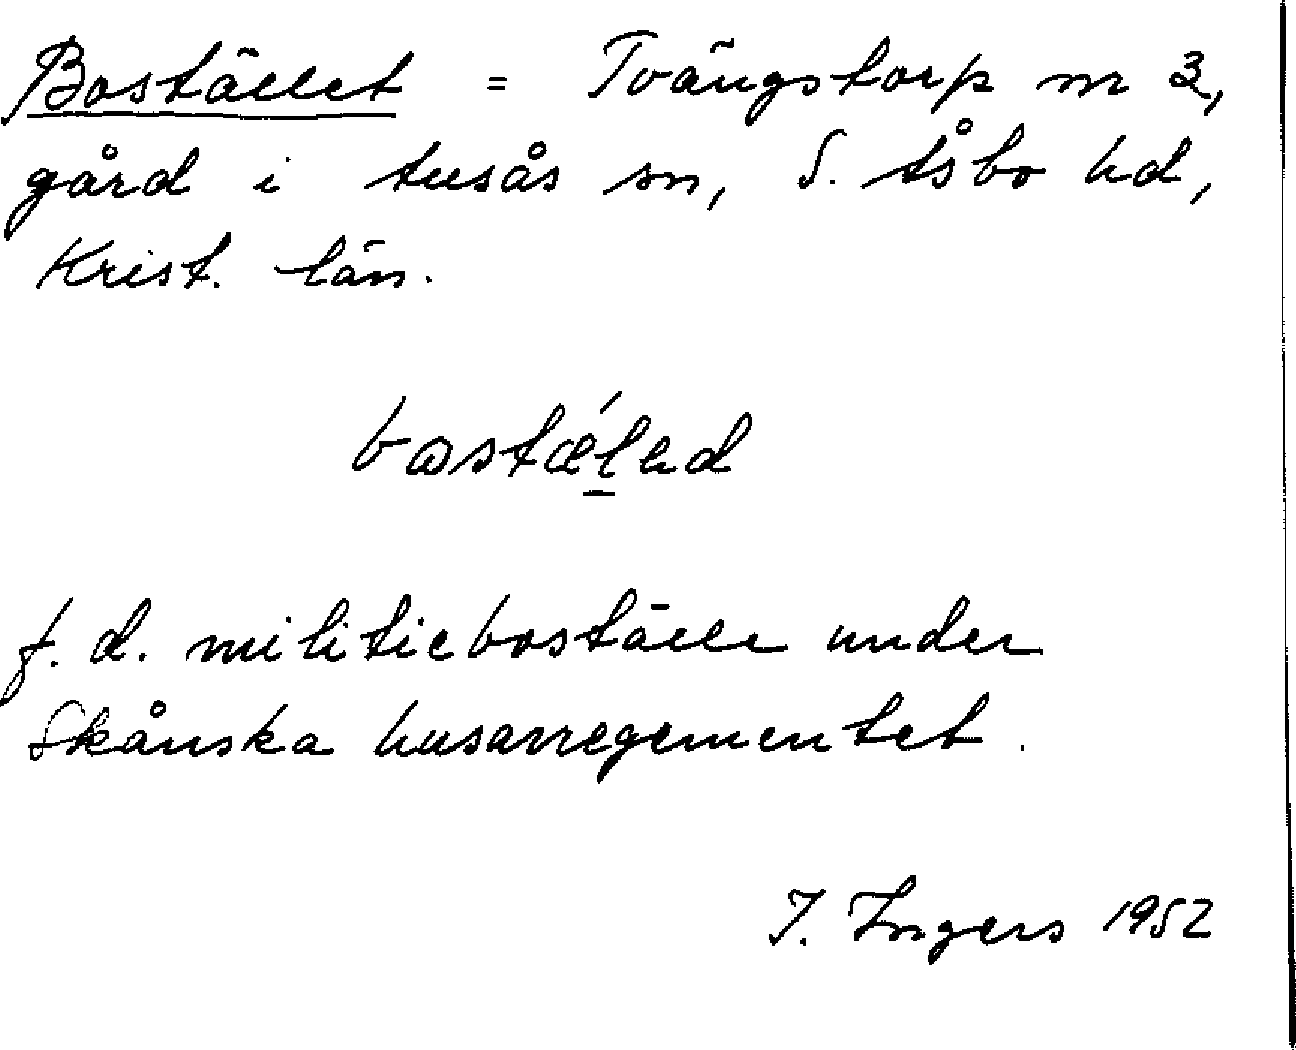 Bostället = Tvängstorp nr 3,
gård i Ausås sn, S. Åsbo hd,
Krist. län.
f. d. militieboställe under
Skånska husarregementet.
I. Ingers 1952